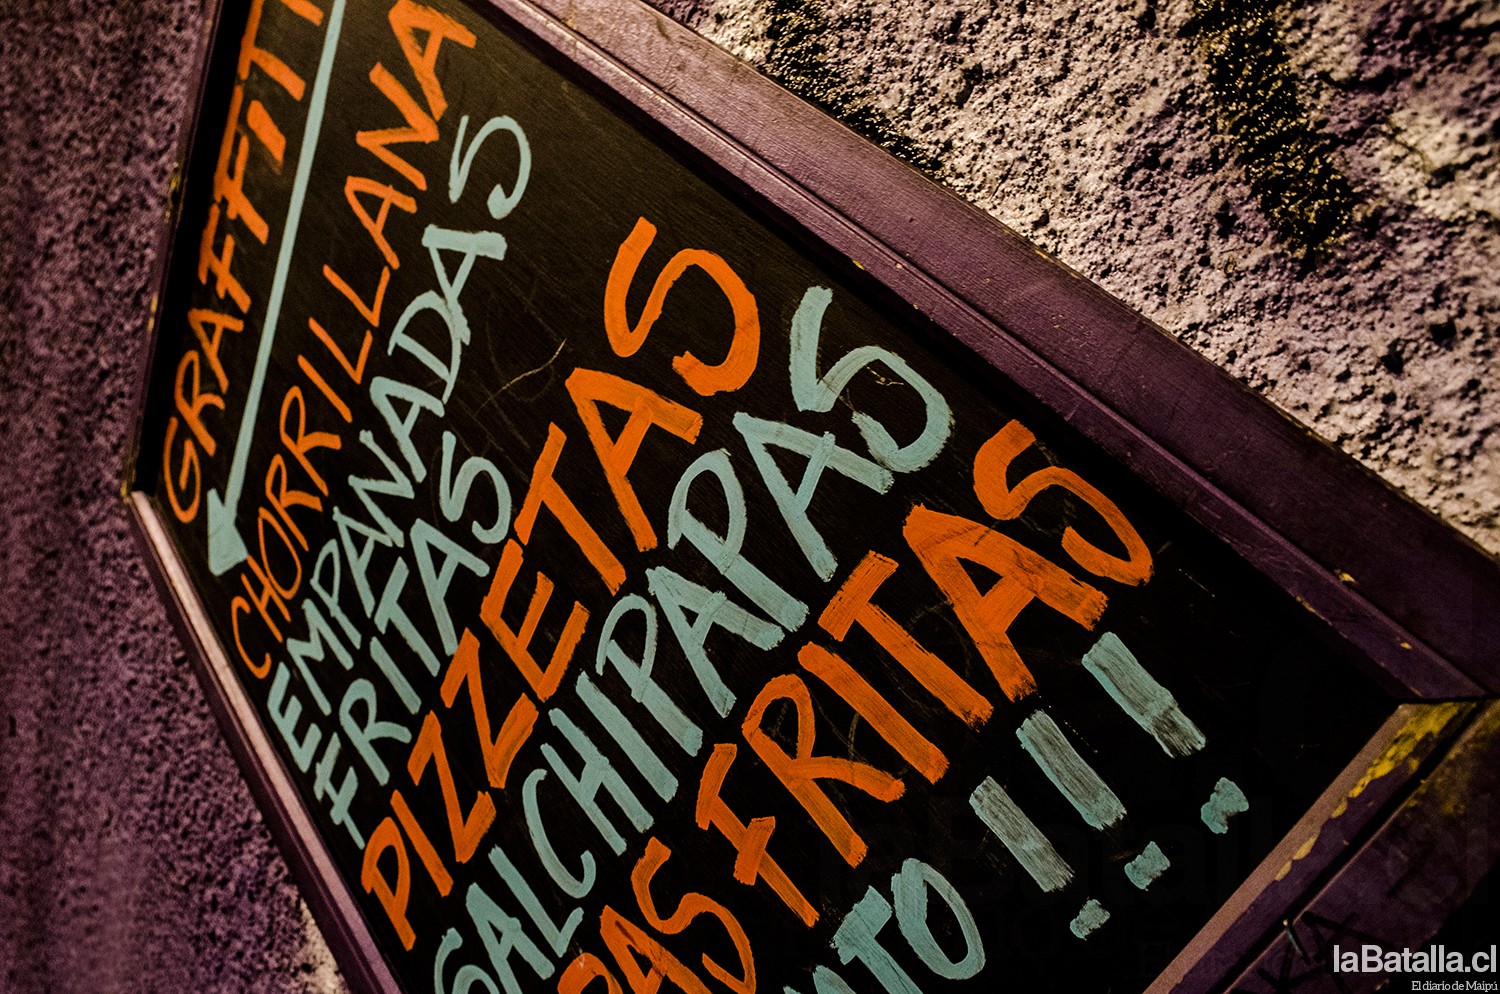 GRAFFITI
CHORRILLANA
EMPANADAS
FRITAS
PIZZETAS
SALCHIPAPAS
FRITAS
!!!
laBatalla.cl
El diario de Maipú